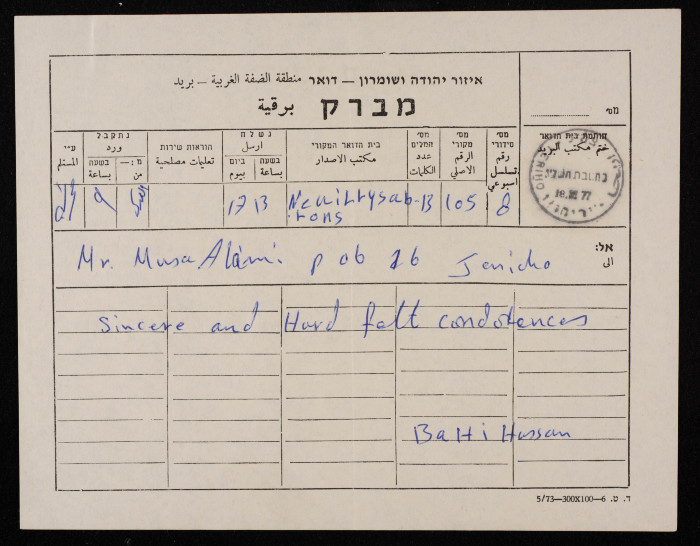 איזור יהודה ושומרון — דואר منطقة الضفة الغربية — بريد
מברק برقية
מס׳
חותמת בית הדואר
ختم مكتب البريد
JERICHO
18.III.77
נתקבל
ورد
ע״י
המستلم
בשעה
بساعة
מ: —
من
הוראות שירות
تعليمات مصلحية
נשלח
ارسل
ביום
بيوم
בשעה
بساعة
בית הדואר המקורי
مكتب الاصدار
מס׳ המלים
عدد الكلمات
מס׳ מקורי
الرقم الاصلي
מס׳ סידורי
رقم تسلسل اسبوعي
9
17 13
Neuillysab-
rons
13
105
8
אל:
الى
Mr. Musa Alami p ob 26 Jericho
Sincere and Hard felt condolences
BaHi Hassan
ד. ט. 6—300X100—5/73